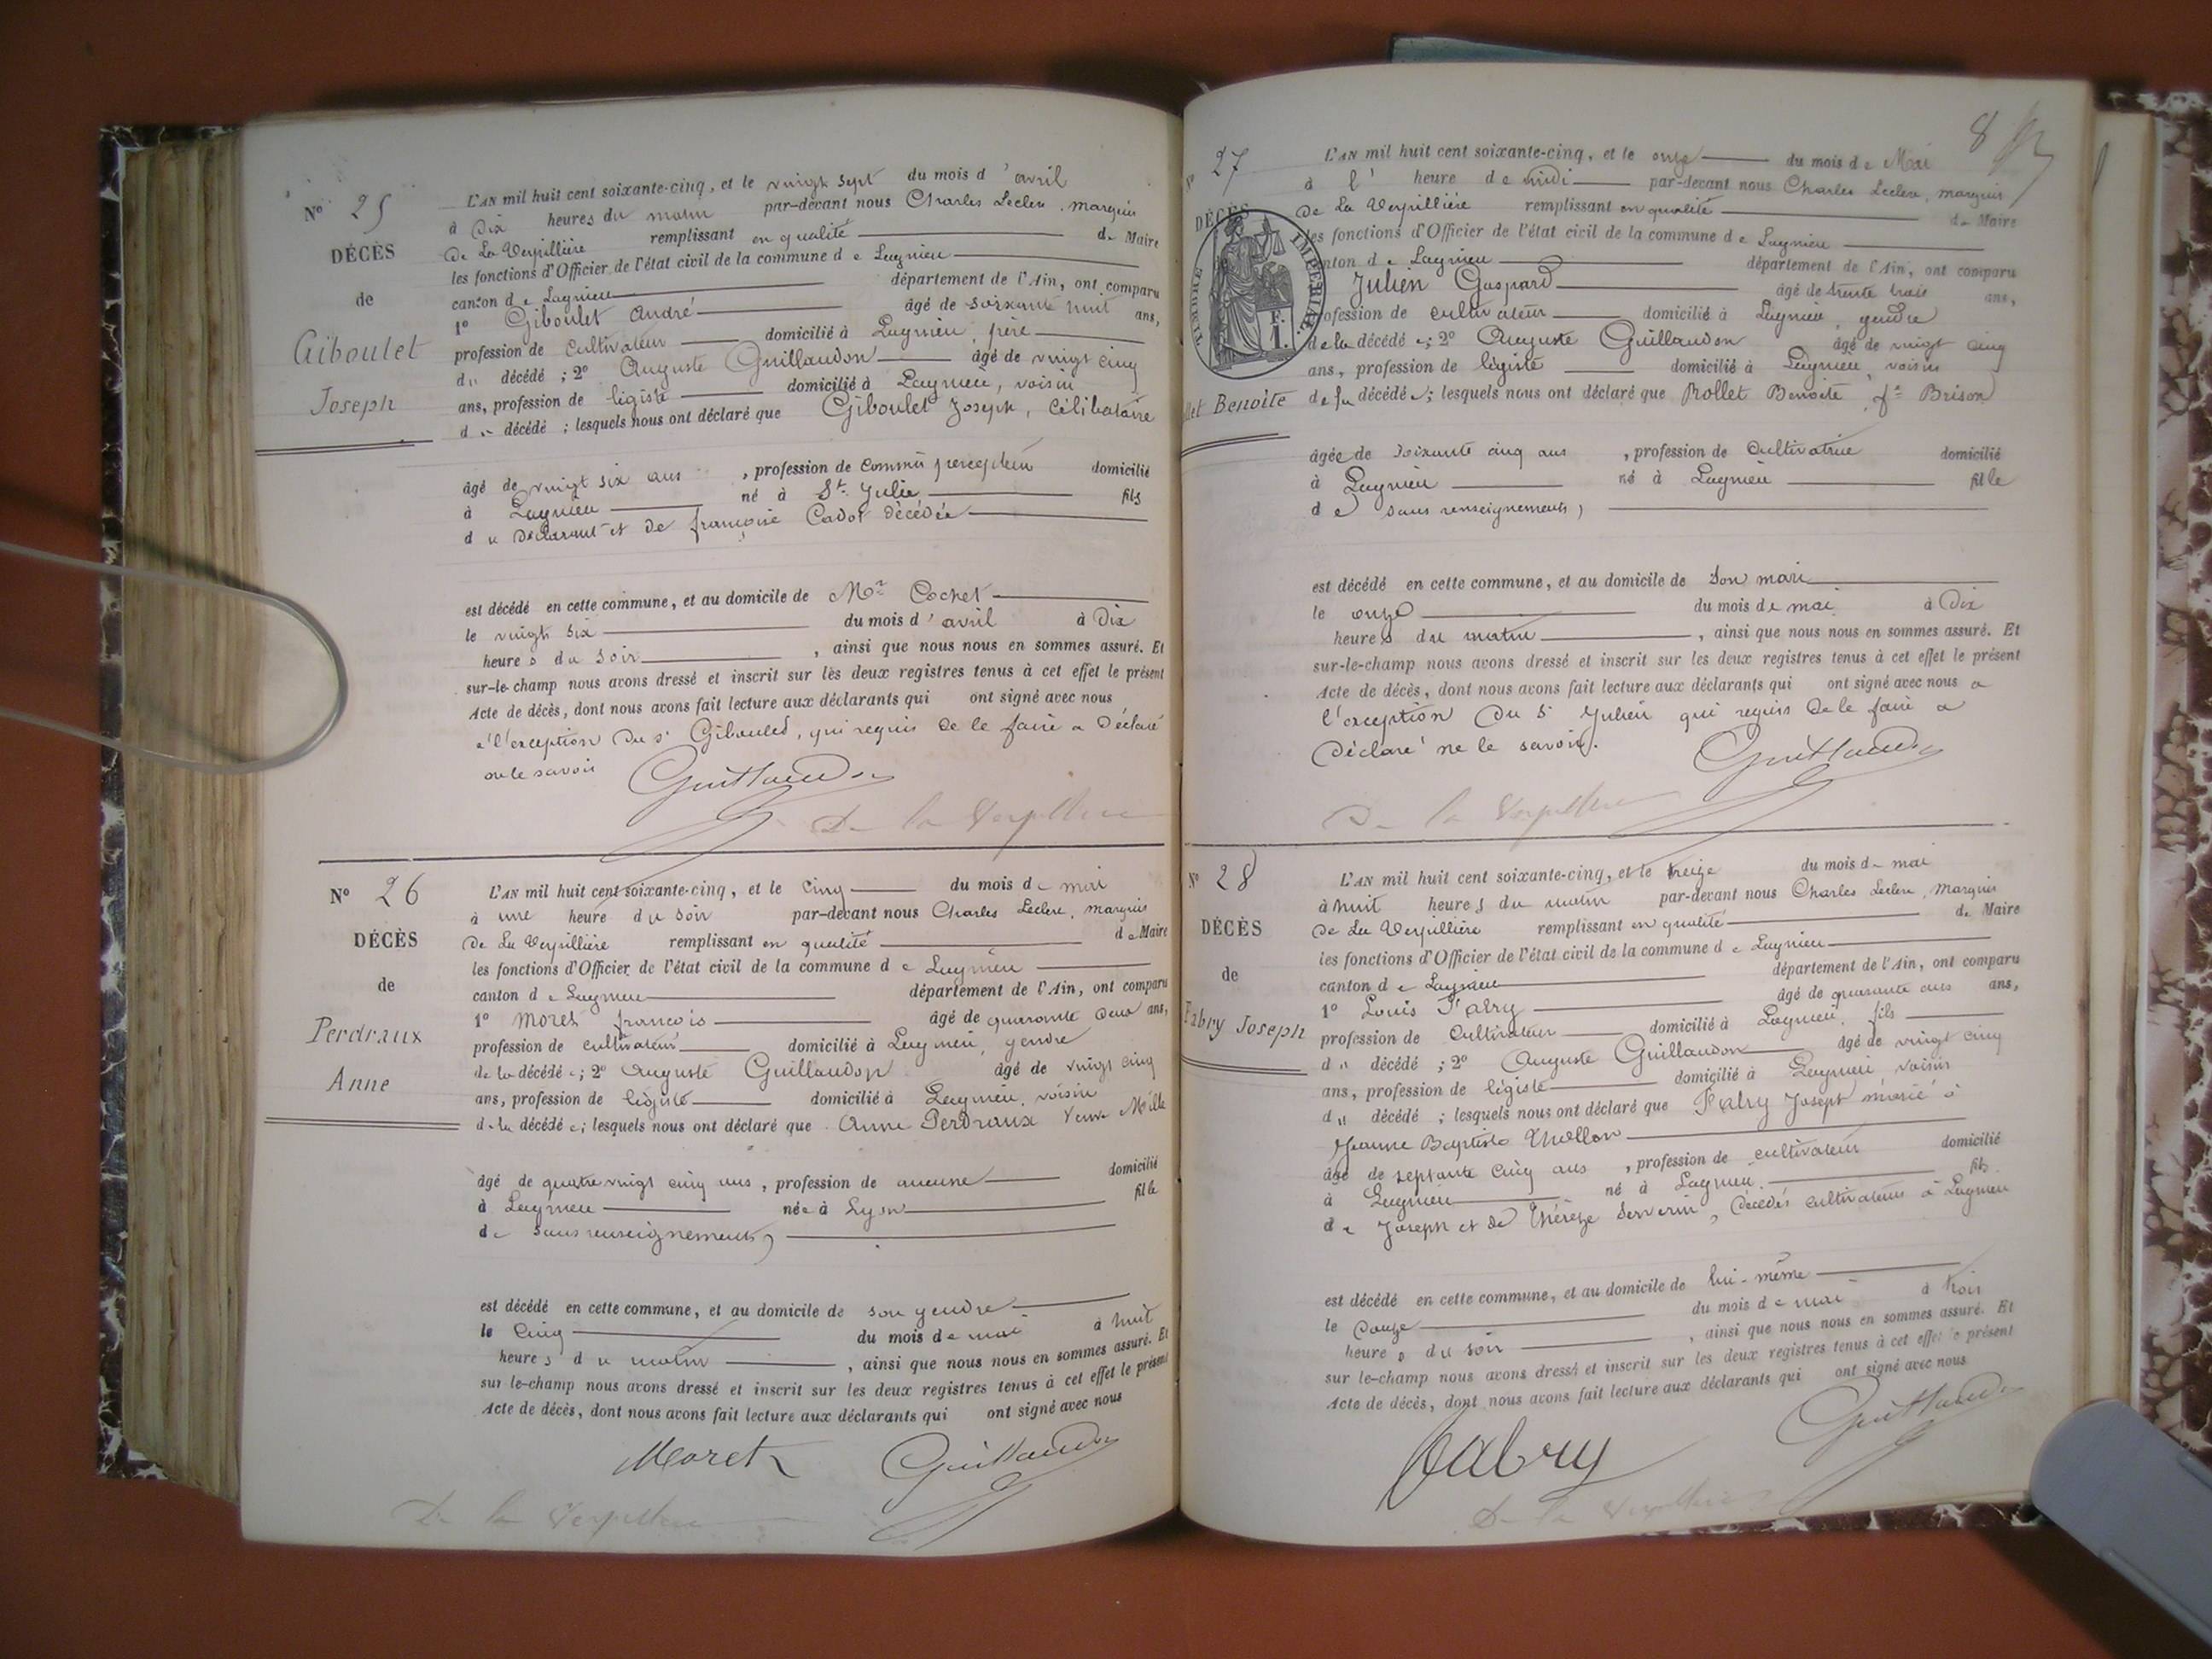 N° 25
DÉCÈS
de
Giboulet
Joseph
L'AN mil huit cent soixante-cinq, et le vingt sept du mois d'avril
à Dix heures du matin par-devant nous Charles Leclerc, marquis
De La Verpillière remplissant en qualité de Maire
les fonctions d'Officier de l'état civil de la commune de Lagnieu
canton de Lagnieu département de l'Ain, ont comparu
1° Giboulet André âgé de soixante huit ans,
profession de Cultivateur domicilié à Lagnieu, père
du décédé ; 2° Auguste Guillaudon âgé de vingt cinq
ans, profession de légiste domicilié à Lagnieu, voisin
du décédé ; lesquels nous ont déclaré que Giboulet Joseph, célibataire
âgé de vingt six ans, profession de commis percepteur domicilié
à Lagnieu né à St. Julie fils
du Déclarant et de françoise Cadot décédée
est décédé en cette commune, et au domicile de Mr Cochet
le vingt six du mois d'avril à Dix
heures du soir, ainsi que nous nous en sommes assuré. Et
sur-le-champ nous avons dressé et inscrit sur les deux registres tenus à cet effet le présent
Acte de décès, dont nous avons fait lecture aux déclarants qui ont signé avec nous
a l'exception Du s. Giboulet, qui requis de le faire a Déclaré
ne le savoir
Guillaudon
De la Verpillière
N° 26
DÉCÈS
de
Perdraux
Anne
L'AN mil huit cent soixante-cinq, et le cinq du mois de mai
à une heure du soir par-devant nous Charles Leclerc, marquis
De La Verpillière remplissant en qualité de Maire
les fonctions d'Officier de l'état civil de la commune de Lagnieu
canton de Lagnieu département de l'Ain, ont comparu
1° Moret françois âgé de quarante deux ans,
profession de cultivateur domicilié à Lagnieu, gendre
de la décédée ; 2° Auguste Guillaudon âgé de vingt cinq
ans, profession de légiste domicilié à Lagnieu, voisin
de la décédée ; lesquels nous ont déclaré que Anne Perdraux Veuve Mille
âgé de quatre vingt cinq ans, profession de aucune domicilié
à Lagnieu née à Lyon fille
de sans renseignements,
est décédé en cette commune, et au domicile de son gendre
le cinq du mois de mai à huit
heures du matin, ainsi que nous nous en sommes assuré. Et
sur le-champ nous avons dressé et inscrit sur les deux registres tenus à cet effet le présent
Acte de décès, dont nous avons fait lecture aux déclarants qui ont signé avec nous
Moret Guillaudon
De la Verpillière
8
N° 27
DÉCÈS
llet Benoîte
TIMBRE IMPÉRIAL
F.
1.
L'AN mil huit cent soixante-cinq, et le onze du mois de Mai
à l'heure de midi par-devant nous Charles Leclerc, marquis
De La Verpillière remplissant en qualité de Maire
les fonctions d'Officier de l'état civil de la commune de Lagnieu
anton de Lagnieu département de l'Ain, ont comparu
Julien Gaspard âgé de trente trois ans,
ofession de cultivateur domicilié à Lagnieu, gendre
de la décédée ; 2° Auguste Guillaudon âgé de vingt cinq
ans, profession de légiste domicilié à Lagnieu, voisin
de la décédée ; lesquels nous ont déclaré que Rollet Benoîte fe Brison
âgée de soixante cinq ans, profession de cultivatrice domicilié
à Lagnieu né à Lagnieu fille
de sans renseignements,
est décédé en cette commune, et au domicile de son mari
le onze du mois de mai à Dix
heures du matin, ainsi que nous nous en sommes assuré. Et
sur-le-champ nous avons dressé et inscrit sur les deux registres tenus à cet effet le présent
Acte de décès, dont nous avons fait lecture aux déclarants qui ont signé avec nous a
l'exception Du S. Julien qui requis de le faire a
Déclaré ne le savoir.
Guillaudon
De la Verpillière
N° 28
DÉCÈS
de
Fabry Joseph
L'AN mil huit cent soixante-cinq, et le treize du mois de mai
à huit heures du matin par-devant nous Charles Leclerc, Marquis
De La Verpillière remplissant en qualité de Maire
les fonctions d'Officier de l'état civil de la commune de Lagnieu
canton de Lagnieu département de l'Ain, ont comparu
1° Louis Fabry âgé de quarante ans ans,
profession de Cultivateur domicilié à Lagnieu, fils
du décédé ; 2° Auguste Guillaudon âgé de vingt cinq
ans, profession de légiste domicilié à Lagnieu voisin
du décédé ; lesquels nous ont déclaré que Fabry Joseph marié à
Jeanne Baptiste Thollon
âgé de septante cinq ans, profession de cultivateur domicilié
à Lagnieu né à Lagnieu fils
de Joseph et de Thérèze Serverin, décédés cultivateurs à Lagnieu
est décédé en cette commune, et au domicile de lui-même
le Douze du mois de mai à trois
heures du soir, ainsi que nous nous en sommes assuré. Et
sur le-champ nous avons dressé et inscrit sur les deux registres tenus à cet effet le présent
Acte de décès, dont nous avons fait lecture aux déclarants qui ont signé avec nous
Fabry Guillaudon
De la Verpillière